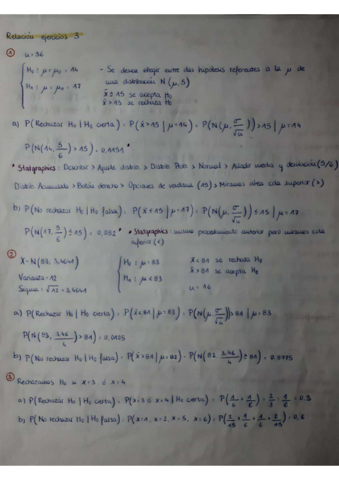 Relación ejercicios 3
① n=36
H₀ : μ = μ₀ = 14 - Se desea elegir entre dos hipótesis referentes a la μ de
una distribución N(μ, 5)
H₁ : μ = μ₁ = 17 x̄ ≤ 15 se acepta H₀
x̄ > 15 se rechaza H₀
a) P(Rechazar H₀ | H₀ cierta) = P(x̄ > 15 | μ = 14) = P(N(μ, σ/√n)) > 15 | μ = 14
P(N(14, 5/6) > 15) = 0,1151
* Statgraphics: Describir > Ajuste distrib > Distrib Prob > Normal > Añadir media y desviación (5/6)
Distrib Acumulada > Botón derecho > Opciones de ventana (15) > Miramos área cola superior (>)
b) P(No rechazar H₀ | H₀ falsa) = P(x̄ ≤ 15 | μ = 17) = P(N(μ, σ/√n)) ≤ 15 | μ = 17
P(N(17, 5/6) ≤ 15) = 0,082 * Statgraphics: mismo procedimiento anterior pero miramos cola
inferior (<)
② X = N(83, 3,4641) H₀ : μ = 83 x̄ < 81 se rechaza H₀
Varianza = 12 H₁ : μ < 83 x̄ > 81 se acepta H₀
Sigma = √12 = 3,4641 n = 16
a) P(Rechazar H₀ | H₀ cierta) = P(x̄ < 81 | μ = 83) = P(N(μ, σ/√n)) > 81 | μ = 83
P(N(83, 3,46/4) > 81) = 0,0105
b) P(No rechazar H₀ | H₀ falsa) = P(x̄ > 81 | μ = 82) = P(N(82, 3,46/4) ≤ 81) = 0,8775
③ Rechazamos H₀ si x = 3 ó x = 4
a) P(Rechazar H₀ | H₀ cierta) = P(x = 3 ó x = 4 | H₀ cierta) = P(1/6 + 1/6) = 2/3 = 1/6 = 0,3
b) P(No rechazar H₀ | H₀ falsa) = P(x = 1, x = 2, x = 5, x = 6) = P(2/15 + 1/6 + 1/6 + 2/15) = 0,6